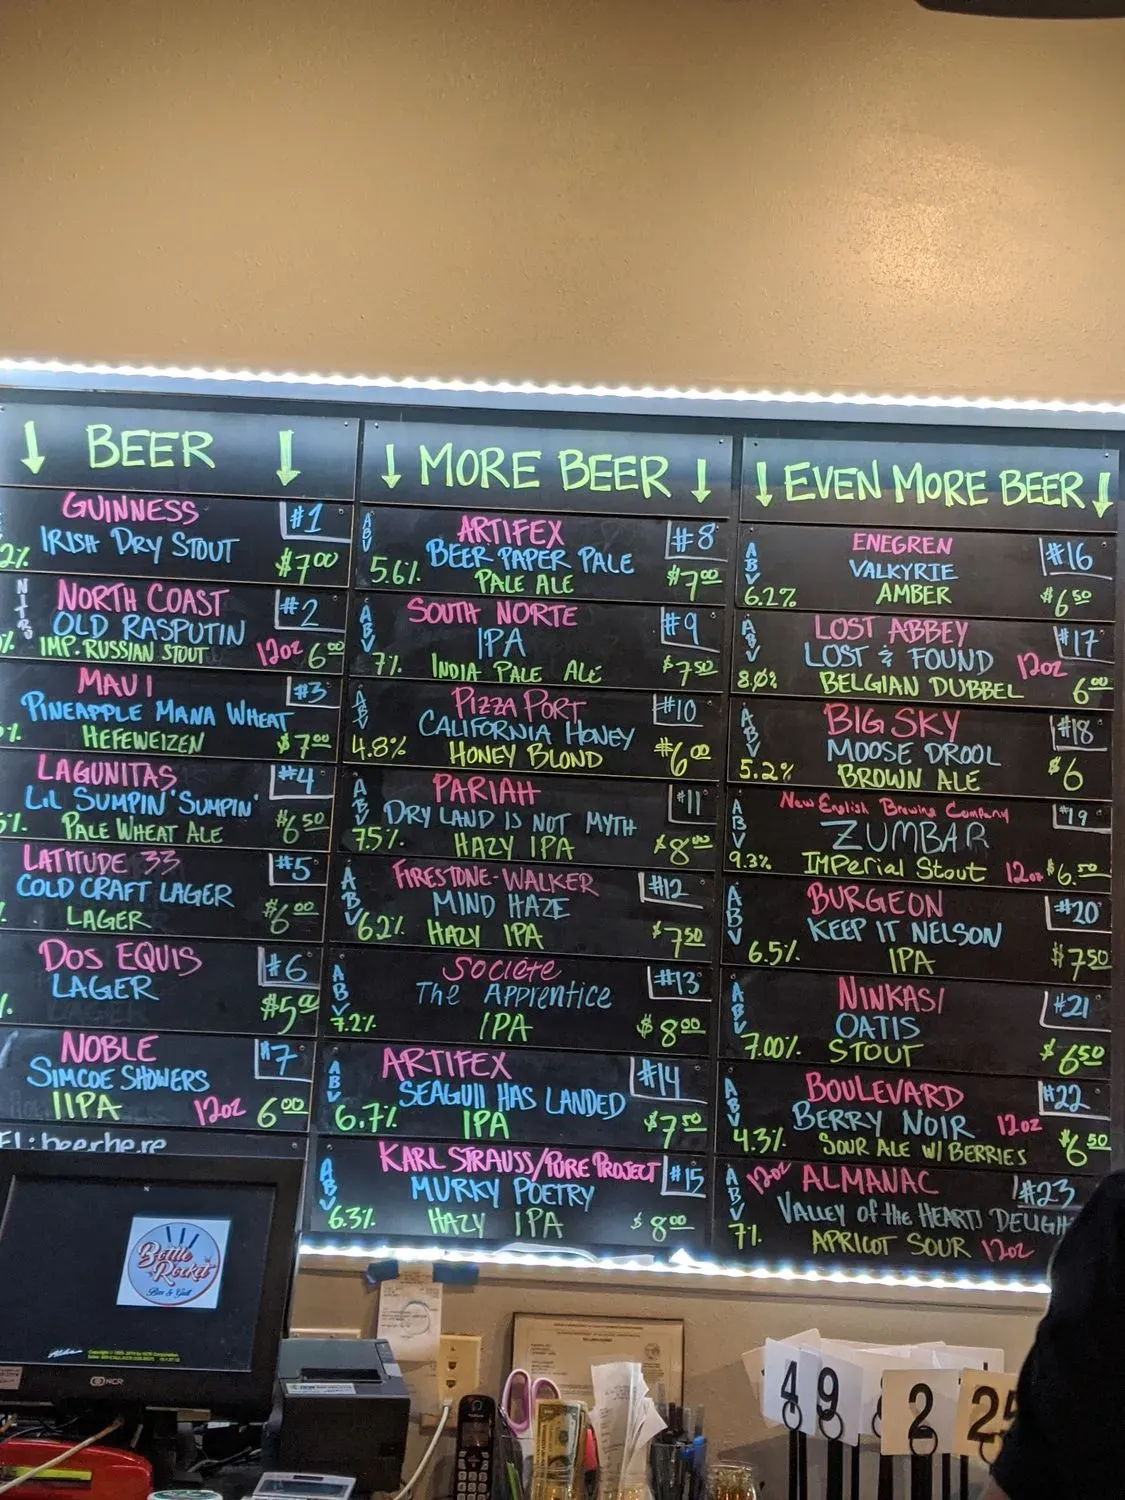 ↓ BEER ↓
GUINNESS #1
IRISH DRY STOUT
2% $7.00
NITRO
NORTH COAST #2
OLD RASPUTIN
% IMP. RUSSIAN STOUT 12oz 6.00
MAUI #3
PINEAPPLE MANA WHEAT
% HEFEWEIZEN $7.00
LAGUNITAS #4
LIL SUMPIN' SUMPIN'
% PALE WHEAT ALE $6.50
LATITUDE 33 #5
COLD CRAFT LAGER
LAGER $6.00
DOS EQUIS #6
LAGER
% $5.00
NOBLE #7
SIMCOE SHOWERS
IIPA 12oz 6.00
: beerhere
↓ MORE BEER ↓
ABV ARTIFEX #8
BEER PAPER PALE
5.6% PALE ALE $7.00
ABV SOUTH NORTE #9
IPA
7% INDIA PALE ALE $7.50
ABV PIZZA PORT #10
CALIFORNIA HONEY
4.8% HONEY BLOND $6.00
ABV PARIAH #11
DRY LAND IS NOT MYTH
7.5% HAZY IPA $8.00
ABV FIRESTONE-WALKER #12
MIND HAZE
6.2% HAZY IPA $7.50
ABV SOCIETE #13
THE APPRENTICE
7.2% IPA $8.00
ABV ARTIFEX #14
SEAGUll HAS LANDED
6.7% IPA $7.50
ABV KARL STRAUSS/PURE PROJECT #15
MURKY POETRY
6.3% HAZY IPA $8.00
↓ EVEN MORE BEER ↓
ABV ENEGREN #16
VALKYRIE
6.2% AMBER $6.50
ABV LOST ABBEY #17
LOST & FOUND 12oz
8.0% BELGIAN DUBBEL 6.00
ABV BIG SKY #18
MOOSE DROOL
5.2% BROWN ALE $6
ABV New English Brewing Company #19
ZUMBAR
9.3% IMPerial Stout 12oz $6.50
ABV BURGEON #20
KEEP IT NELSON
6.5% IPA $7.50
ABV NINKASI #21
OATIS
7.00% STOUT $6.50
ABV BOULEVARD #22
BERRY NOIR 12oz
4.3% SOUR ALE W/ BERRIES $6.50
ABV 12oz ALMANAC #23
VALLEY of the HEART'S DELIGH
7% APRICOT SOUR 12oz
Bottle
Rocket
Bar & Grill
NCR
49
2
25